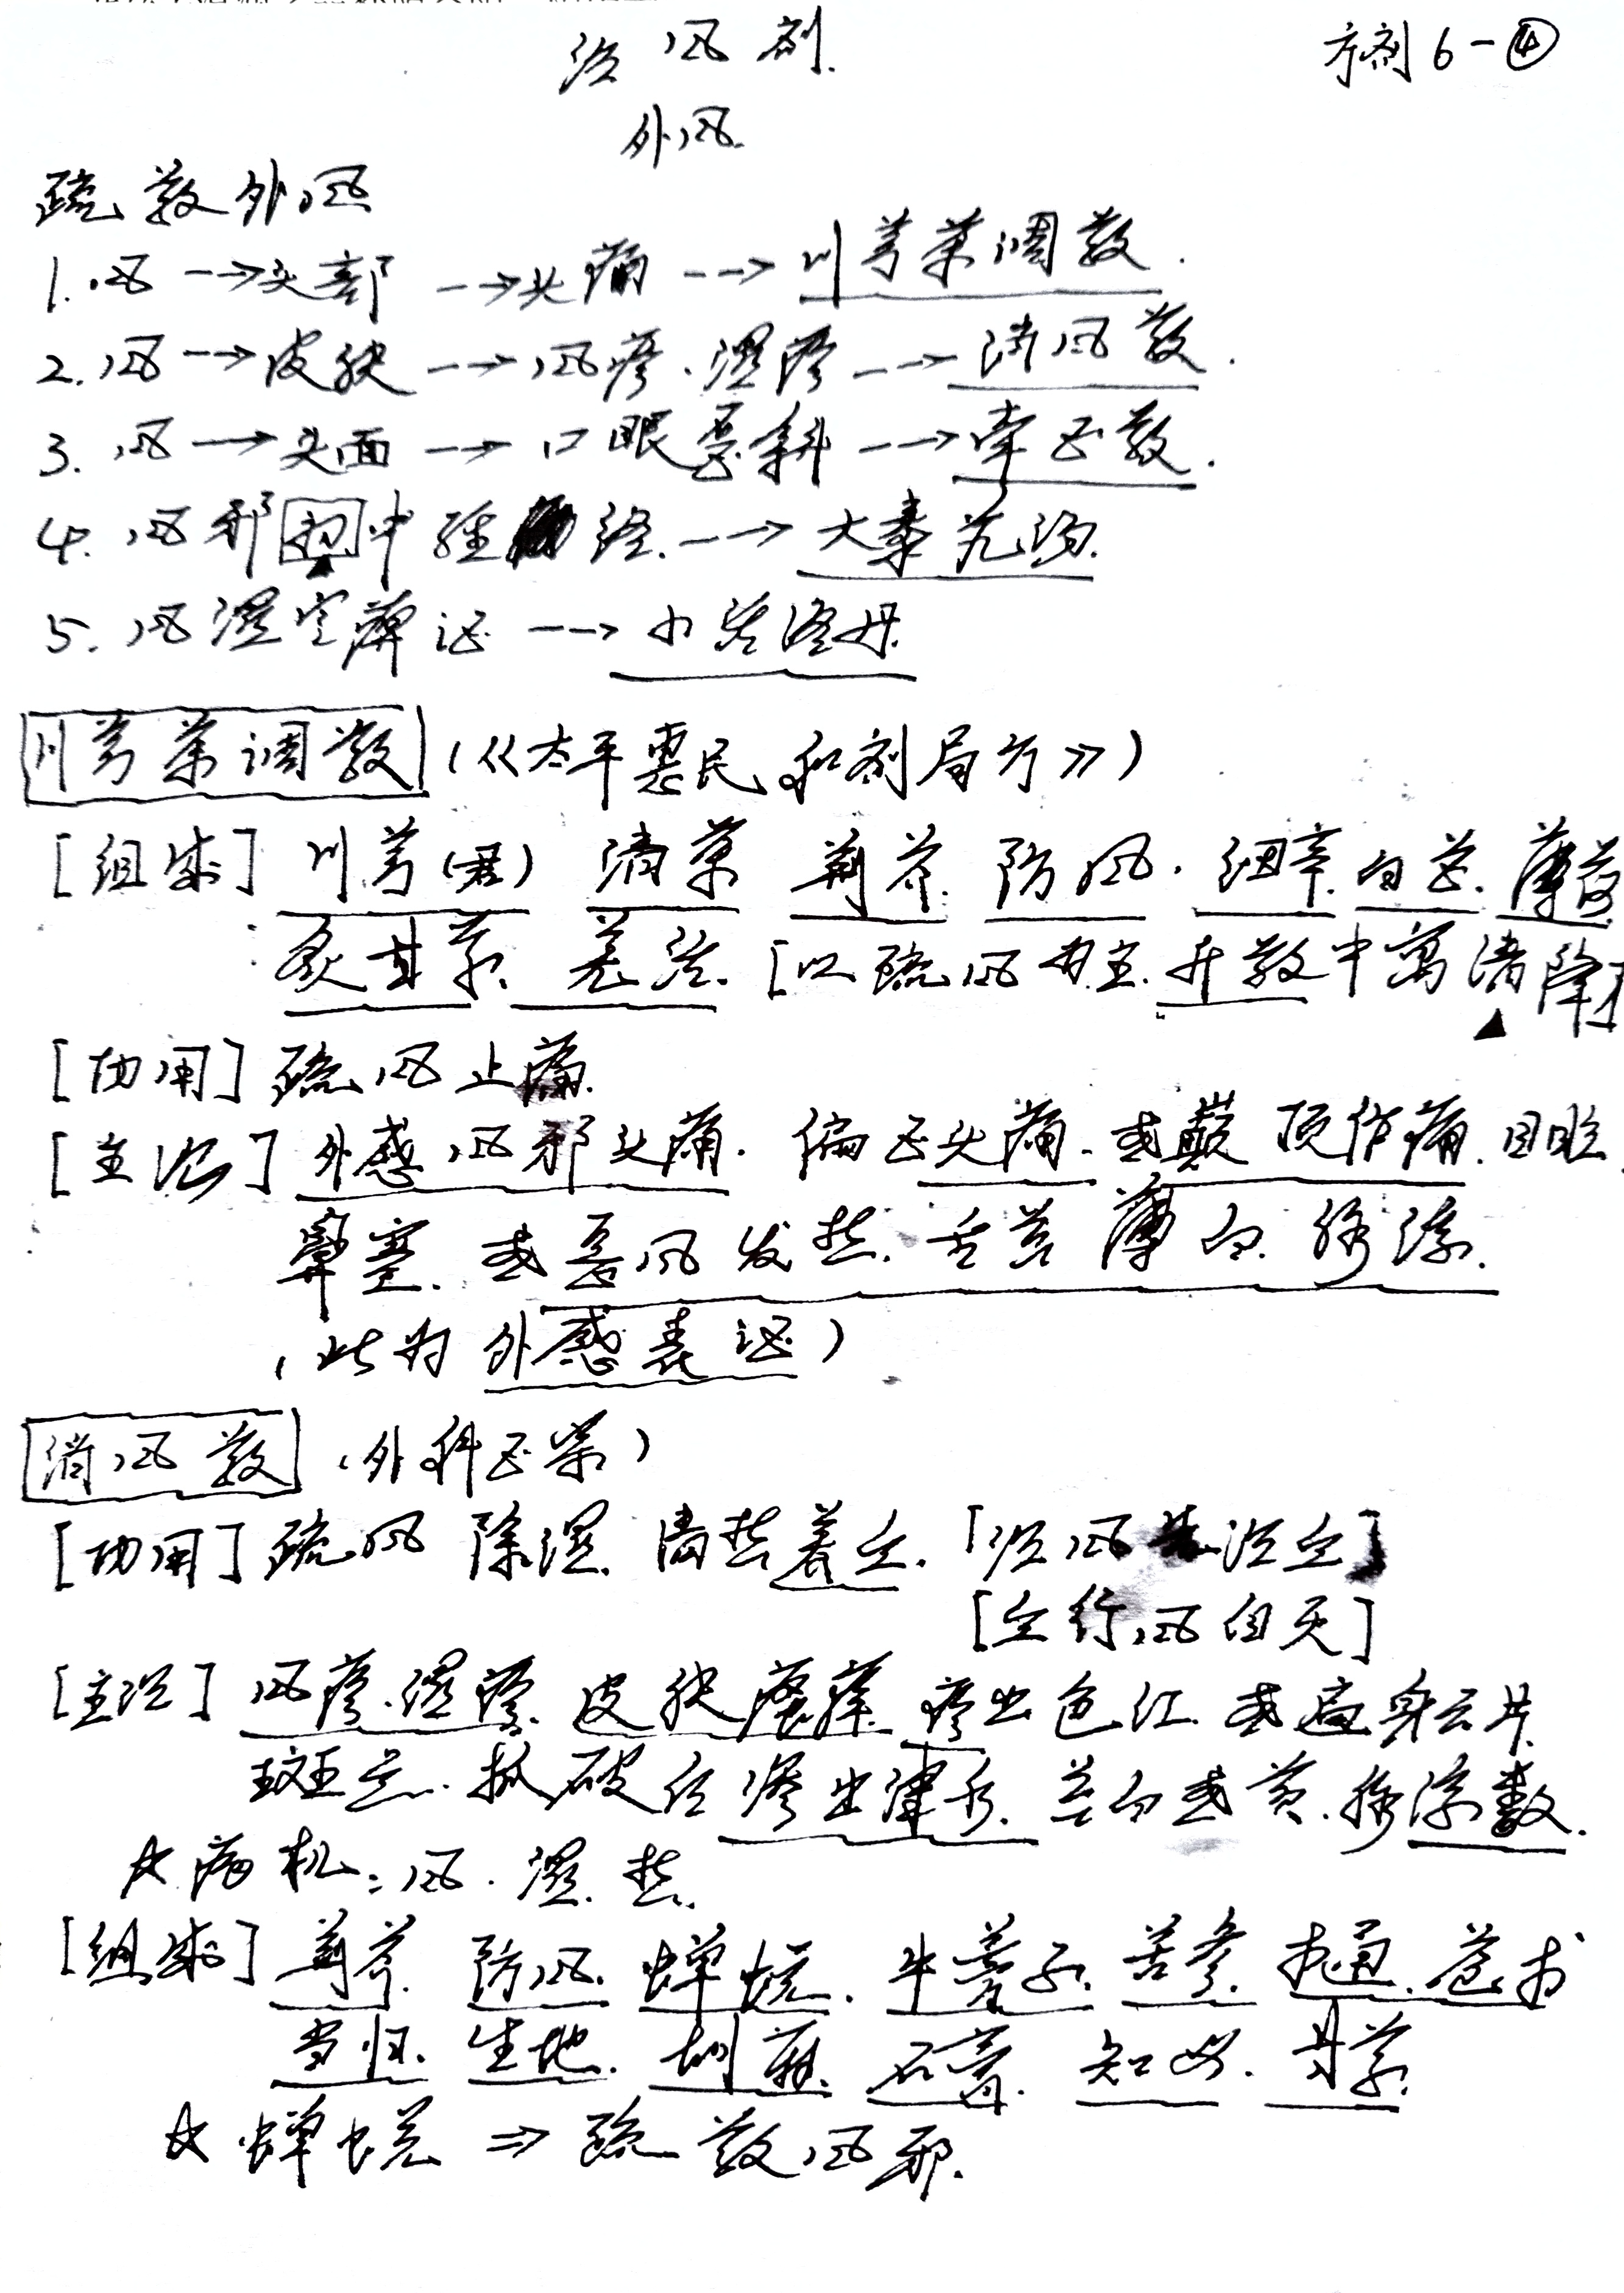 治风剂. 方剂6-④
外风.
疏散外风
1.风→头部→头痛→川芎茶调散.
2.风→皮肤→风疹、湿疹→消风散.
3.风→头面→口眼㖞斜→牵正散.
4.风邪初中经络.→大秦艽汤.
5.风湿寒痹证→小活络丹.
川芎茶调散(《太平惠民和剂局方》)
[组成] 川芎(君) 清茶 荆芥. 防风. 细辛. 白芷. 薄荷
炙甘草. 羌活. [以疏风为主. 升散中寓清降]
[功用] 疏风止痛.
[主治] 外感风邪头痛. 偏正头痛. 或巅顶作痛. 目眩
鼻塞. 或恶风发热. 舌苔薄白. 脉浮.
(此为外感表证)
消风散 (外科正宗)
[功用] 疏风除湿. 清热养血. [治风先治血]
[血行风自灭]
[主治] 风疹.湿疹. 皮肤瘙痒. 疹出色红. 或遍身云片
斑点. 抓破后渗出津水. 苔白或黄. 脉浮数.
☆病机:风.湿.热.
[组成] 荆芥. 防风. 蝉蜕. 牛蒡子. 苦参. 木通. 苍术
当归. 生地. 胡麻. 石膏. 知母. 甘草.
☆蝉蜕⇒疏散风邪.